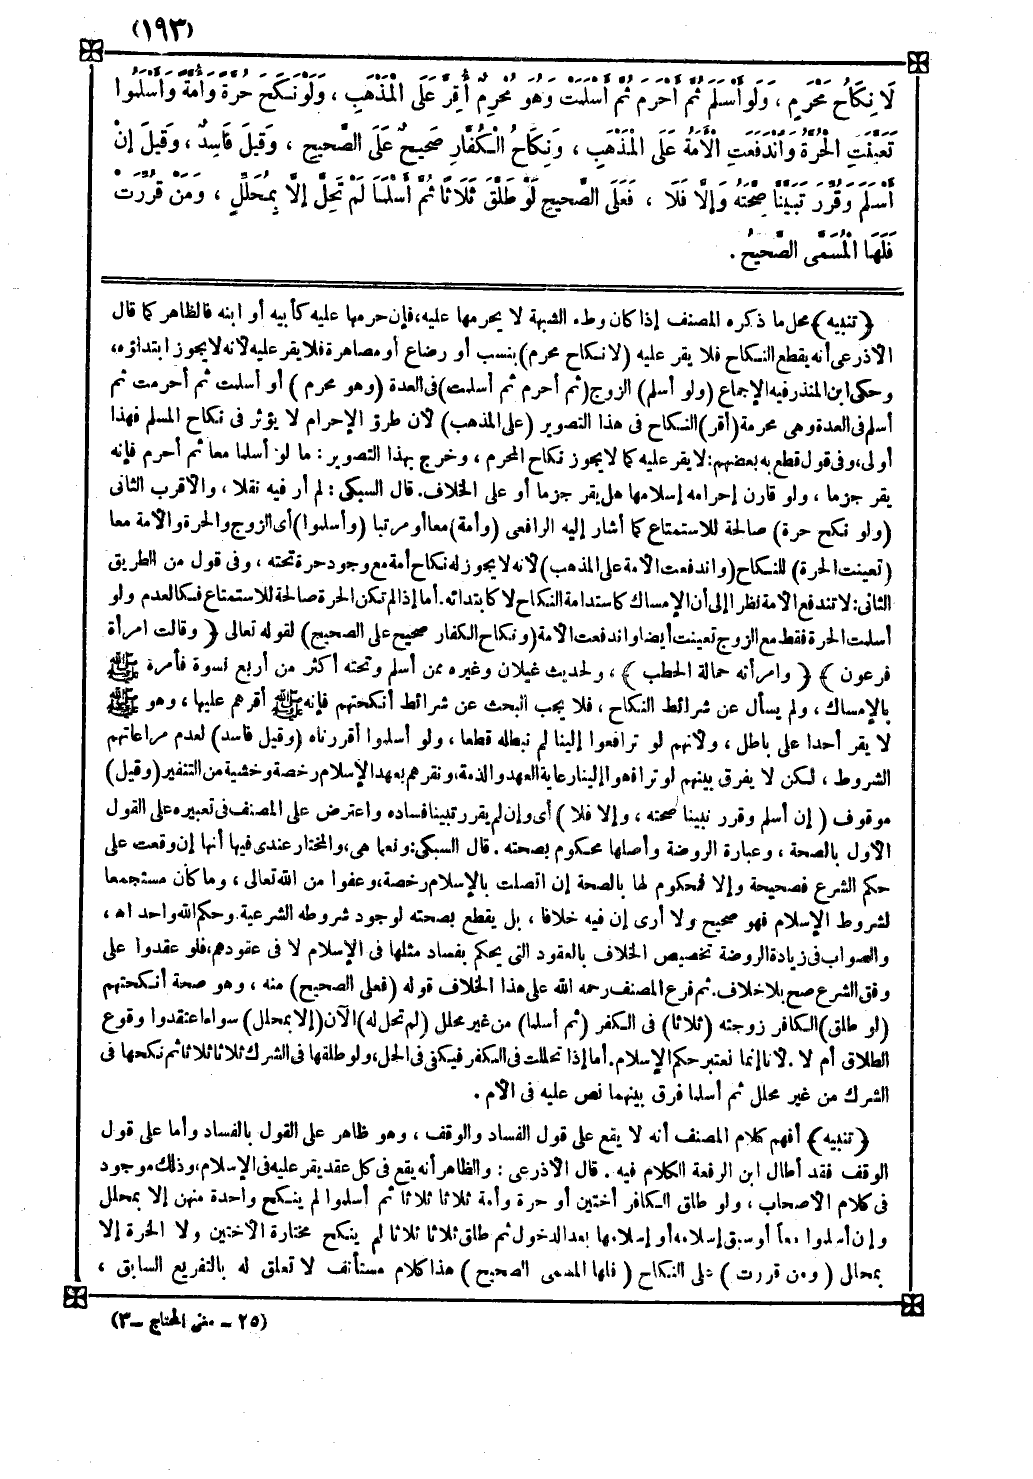 (١٩٣)
لَا نِكَاحُ مَحْرَمٍ ، وَلَو أَسْلَمَ ثُمَّ أَحْرَمَ ثُمَّ أَسْلَمَتْ وَهُوَ مُحْرِمٌ أُقِرَّ عَلَى الْمَذْهَبِ ، وَلَوْ نَكَحَ حُرَّةً وَأَمَةً وَأَسْلَمُوا
تَعَيَّنَتِ الْحُرَّةُ وَانْدَفَعَتِ الْأَمَةُ عَلَى الْمَذْهَبِ ، وَنِكَاحُ الْكُفَّارِ صَحِيحٌ عَلَى الصَّحِيحِ ، وَقِيلَ فَاسِدٌ ، وَقِيلَ إِنْ
أَسْلَمَ وَقُرِّرَ تَبَيَّنَّا صِحَّتَهُ وَإِلَّا فَلَا ، فَعَلَى الصَّحِيحِ لَوْ طَلَّقَ ثَلَاثًا ثُمَّ أَسْلَمَا لَمْ تَحِلَّ إِلَّا بِمُحَلِّلٍ ، وَمَنْ قُرِّرَتْ
فَلَهَا الْمُسَمَّى الصَّحِيحُ .
﴿تنبيه﴾ محل ما ذكره المصنف إذا كان وطء الشبهة لا يحرمها عليه، فإن حرمها عليه كأبيه أو ابنه فالظاهر كما قال
الأذرعى أنه يقطع النكاح فلا يقر عليه (لا نكاح محرم) بنسب أو رضاع أو مصاهرة فلا يقر عليه لأنه لا يجوز ابتداؤه،
وحكى ابن المنذر فيه الإجماع (ولو أسلم) الزوج (ثم أحرم ثم أسلمت) فى العدة (وهو محرم) أو أسلمت ثم أحرمت ثم
أسلم فى العدة وهى محرمة (أقر) النكاح فى هذا التصوير (على المذهب) لأن طرق الإحرام لا يؤثر فى نكاح المسلم فهذا
أولى، وفى قول قطع به بعضهم: لا يقر عليه كما لا يجوز نكاح المحرم ، وخرج بهذا التصوير : ما لو أسلما معا ثم أحرم فإنه
يقر جزما ، ولو قارن إحرامه إسلامها هل يقر جزما أو على الخلاف. قال السبكى : لم أر فيه نقلا ، والأقرب الثانى
(ولو نكح حرة) صالحة للاستمتاع كما أشار إليه الرافعى (وأمة) معا أو مرتبا (وأسلموا) أى الزوج والحرة والأمة معا
(تعينت الحرة) للنكاح (واندفعت الأمة على المذهب) لأنه لا يجوز له نكاح أمة مع وجود حرة تحته ، وفى قول من الطريق
الثانى: لا تندفع الأمة نظرا إلى أن الإمساك كاستدامة النكاح لا كابتدائه. أما إذا لم تكن الحرة صالحة للاستمتاع فكالعدم ولو
أسلمت الحرة فقط مع الزوج تعينت أيضا واندفعت الأمة (ونكاح الكفار صحيح على الصحيح) لقوله تعالى ﴿ وقالت امرأة
فرعون ﴾ ﴿ وامرأته حمالة الحطب ﴾ ، ولحديث غيلان وغيره ممن أسلم وتحته أكثر من أربع نسوة فأمره ﷺ
بالإمساك ، ولم يسأل عن شرائط النكاح ، فلا يجب البحث عن شرائط أنكحتهم فإنه ﷺ أقرهم عليها ، وهو ﷺ
لا يقر أحدا على باطل ، ولأنهم لو ترافعوا إلينا لم نبطله قطعا ، ولو أسلموا أقررناه (وقيل فاسد) لعدم مراعاتهم
الشروط ، لكن لا يفرق بينهم لو ترافعوا إلينا رعاية العهد والذمة، ونقرهم بعهد الإسلام رخصة وخشية من التنفير (وقيل)
موقوف ( إن أسلم وقرر تبينا صحته ، وإلا فلا ) أى وإن لم يقرر تبينا فساده واعترض على المصنف فى تعبيره على القول
الأول بالصحة ، وعبارة الروضة وأصلها محكوم بصحته . قال السبكى: ونعما هى، والمختار عندى فيها أنها إن وقعت على
حكم الشرع فصحيحة وإلا فمحكوم لها بالصحة إن اتصلت بالإسلام رخصة، وعفوا من الله تعالى ، وما كان مستجمعا
لشروط الإسلام فهو صحيح ولا أرى إن فيه خلافا ، بل يقطع بصحته لوجود شروطه الشرعية. وحكم الله واحد اه ،
والصواب فى زيادة الروضة تخصيص الخلاف بالعقود التى يحكم بفساد مثلها فى الإسلام لا فى عقودهم، فلو عقدوا على
وفق الشرع صح بلا خلاف. ثم فرع المصنف رحمه الله على هذا الخلاف قوله (فعلى الصحيح) منه ، وهو صحة أنكحتهم
(لو طلق) الكافر زوجته (ثلاثا) فى الكفر (ثم أسلما) من غير محلل (لم تحل له) الآن (إلا بمحلل) سواء اعتقدوا وقوع
الطلاق أم لا . لأنا إنما نعتبر حكم الإسلام. أما إذا تحللت فى الكفر فيكفى فى الحل، ولو طلقها فى الشرك ثلاثا ثلاثا ثم نكحها فى
الشرك من غير محلل ثم أسلما فرق بينهما نص عليه فى الأم .
﴿تنبيه﴾ أفهم كلام المصنف أنه لا يقع على قول الفساد والوقف ، وهو ظاهر على القول بالفساد وأما على قول
الوقف فقد أطال ابن الرفعة الكلام فيه . قال الأذرعى : والظاهر أنه يقع فى كل عقد يقر عليه فى الإسلام، وذلك موجود
فى كلام الأصحاب ، ولو طلق الكافر أختين أو حرة وأمة ثلاثا ثلاثا ثم أسلموا لم ينكح واحدة منهن إلا بمحلل
وإن أسلموا معا أو سبق إسلامه أو إسلامها بعد الدخول ثم طلق ثلاثا ثلاثا لم ينكح مختارة الأختين ولا الحرة إلا
بمحلل ( ومن قررت ) على النكاح ( فلها المسمى الصحيح ) هذا كلام مستأنف لا تعلق له بالتفريع السابق ،
(٢٥ - مغنى المحتاج - ٣)